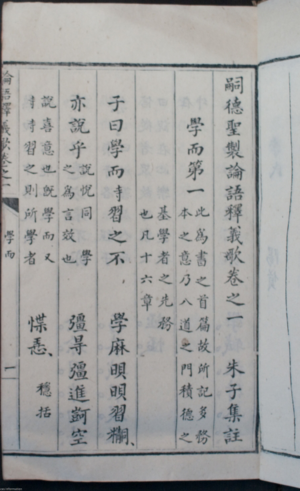 嗣德聖製論語釋義歌卷之一 朱子集註
學而第一
此爲書之首篇故所記多務
本之意乃入道之門積德之
基學者之先務
也凡十六章
子曰學而寺習之不
學麻
習
亦說乎
說悅同 學
之爲言效也
彊尋彊進
空
說喜意也既學而又
寺寺習之則所學者
穩括
論語釋義歌卷之一
學而
一